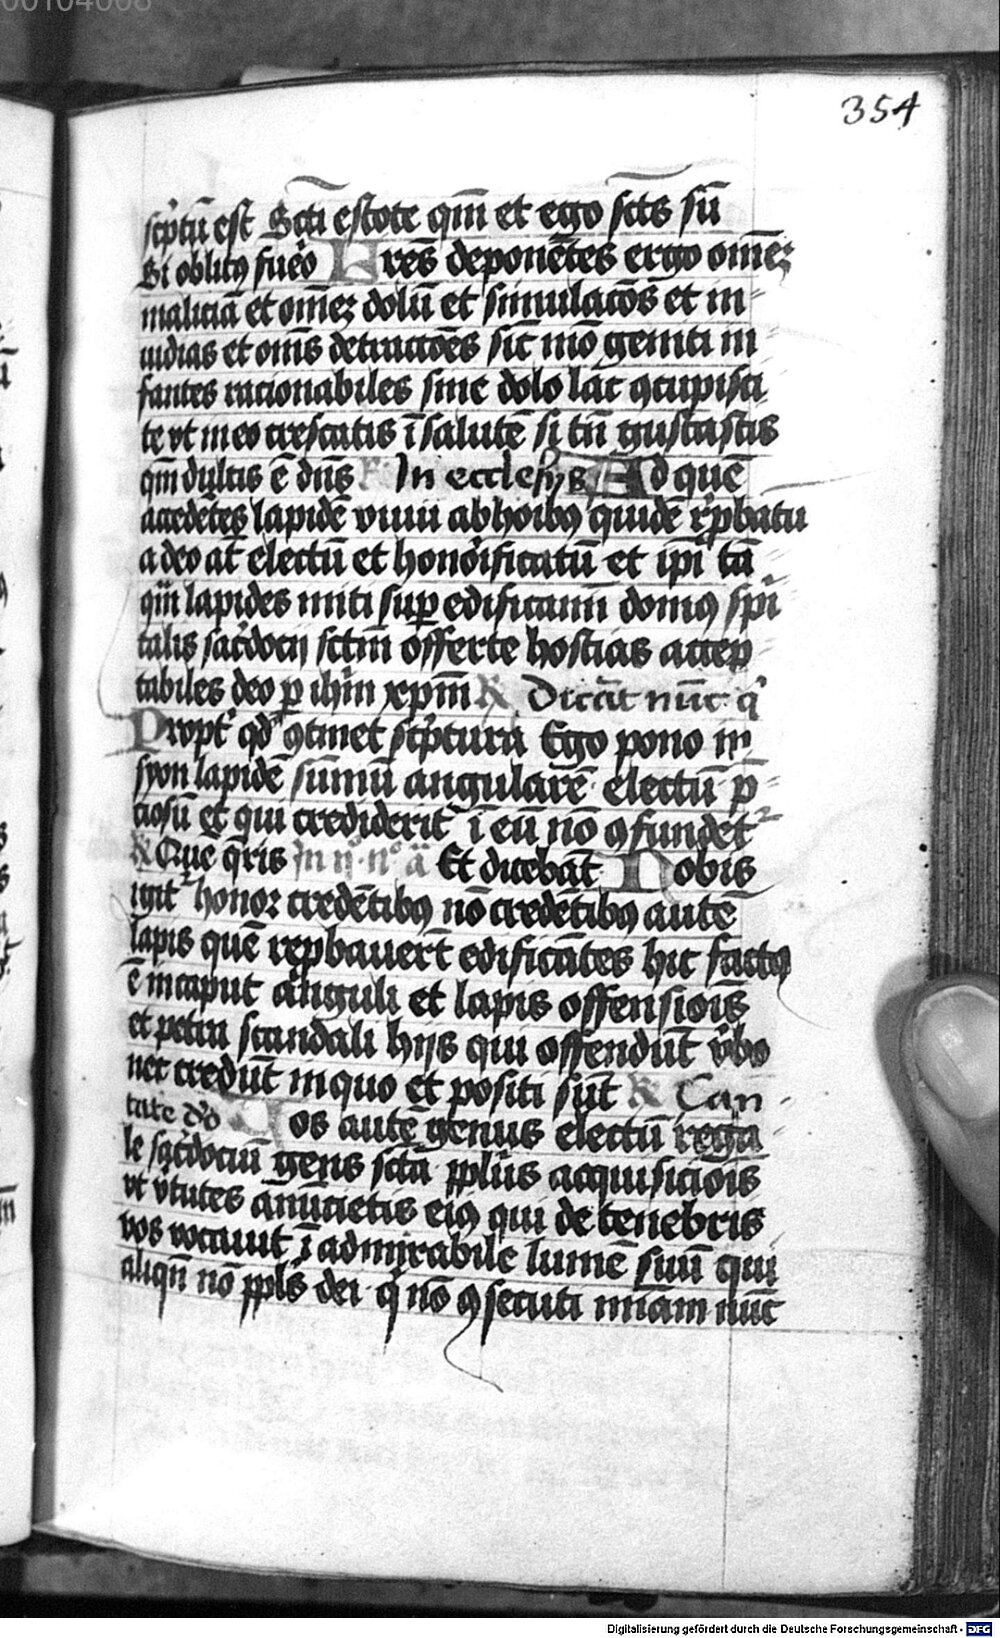 00104008
354
scptū est Scti estote qm̄ et ego sct̄s sū
Si oblitꝰ fuēo Fres deponētes ergo om̄eʒ
maliciā et om̄eʒ dolū et simulacōs et in
uidias et om̄s detractōes sic̄ mō geniti in
fantes racionabiles sine dolo lac ꝯcupisci
te vt in eo crescatis ī salutē si tn̄ gustastis
qm̄ dulcis ē dn̄s ℟ In ecclesijs Ad quē
accedētes lapidē viuū ab hoībꝰ quidē rꝓbatū
a deo at̄ electū et honōificatū et ip̄i tā
qm̄ lapides viui suꝑedificamī domꝰ sp̄i
talis sac̄docij sctm̄ offerte hostias accep
tabiles deo ꝑ ihm̄ xp̄m ℟ Dicāt nūc q̄
Propt̄ qd̄ ꝯtinet sc̄ptura Ego pono in
syon lapidē sūmū angularē electū p̄
ciosū et qui crediderit ī eū nō ꝯfundet̄
℟ Quē q̄ris In ij· n̊ a Et dicebāt Nobis
igit̄ honor credētibꝰ nō credētibꝰ autē
lapis quē rep̄bauer̄t edificātes hic factꝰ
ē in caput anguli et lapis offensiōis
et petra scandali hijs qui offendūt v̄bo
nec credūt in quo et positi sūt ℟ Can
tate dn̄o Vos autē genus electū rega
le sac̄dociū gens sctā ppl̄us acquisiciōis
vt v̄tutes anūcietis eiꝰ qui de tenebris
vos vocauit ī admirabile lumē suū qui
aliqn̄ nō ppl̄s dei q̄ nō ꝯsecuti mīam nūc
Digitalisierung gefördert durch die Deutsche Forschungsgemeinschaft - DFG